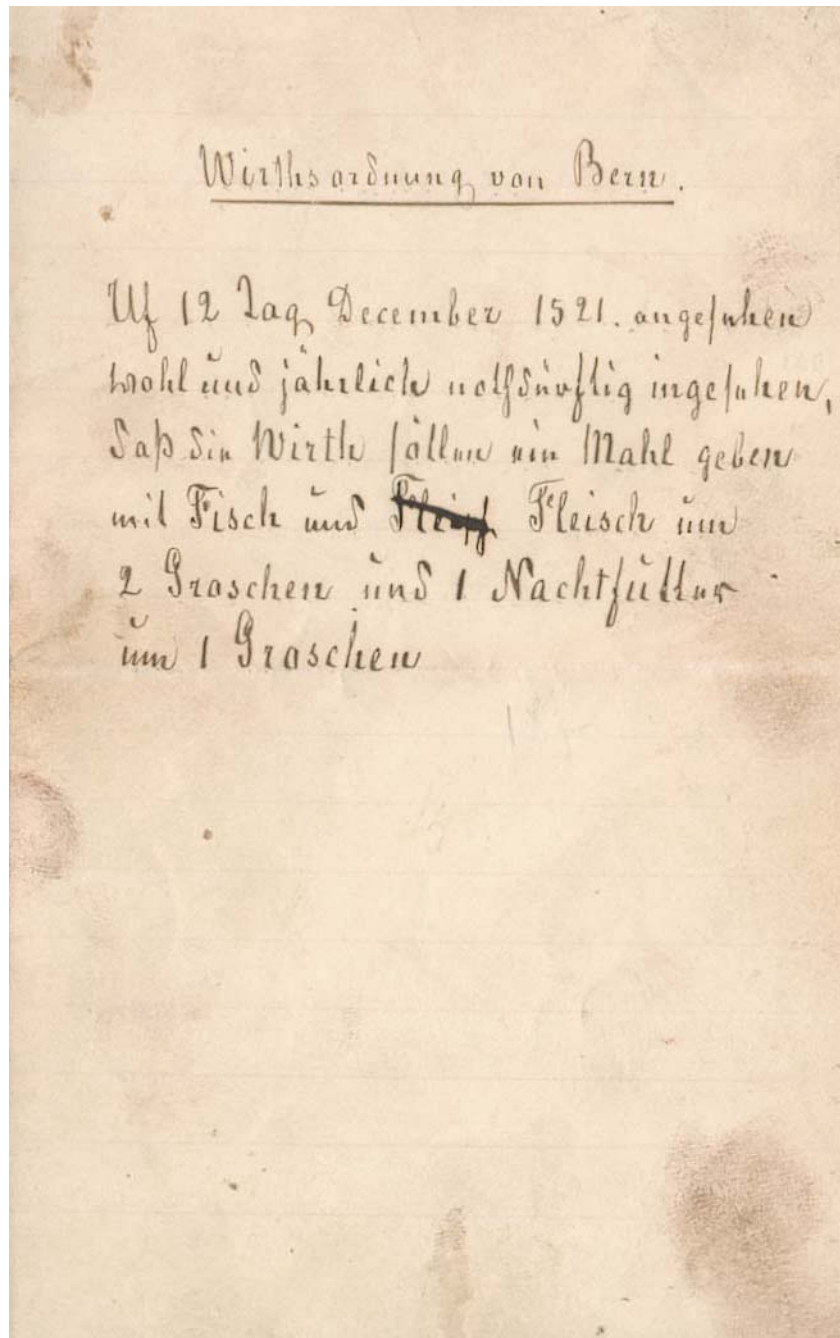 Wirthsordnung von Bern.
Uf 12 Tag December 1521. angesehen
wohl und jährlich nothdürftig ingesehen,
daß die Wirth söllen ein Mahl geben
mit Fisch und Fleisch Fleisch um
2 Groschen und 1 Nachtfutter
um 1 Groschen